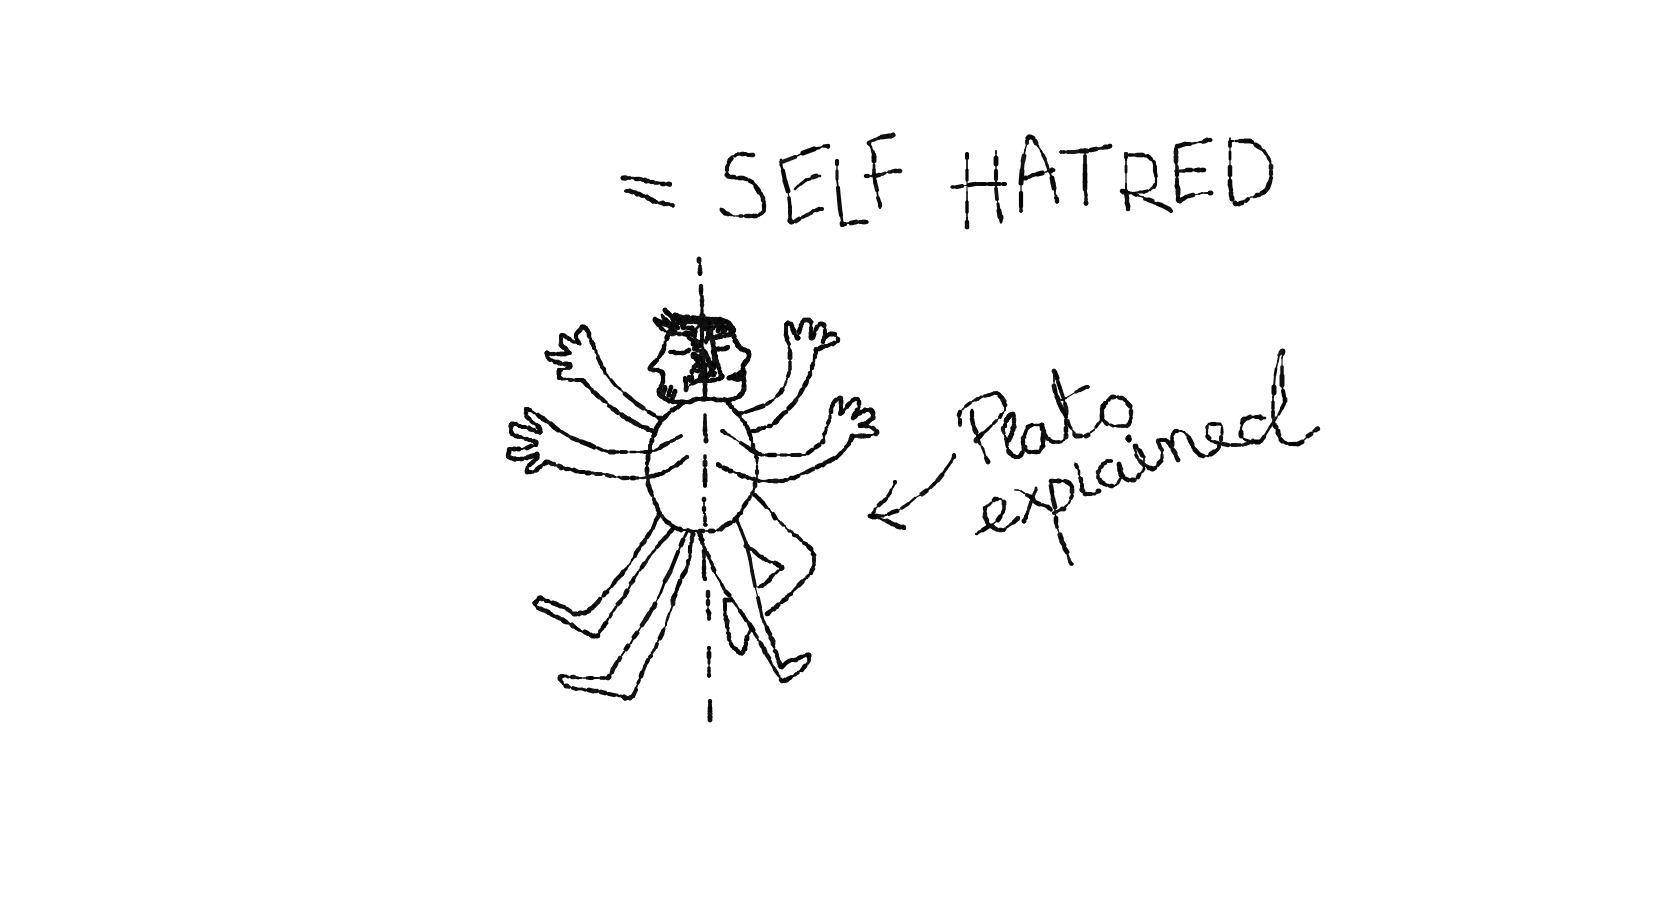 = SELF HATRED
Plato
explained